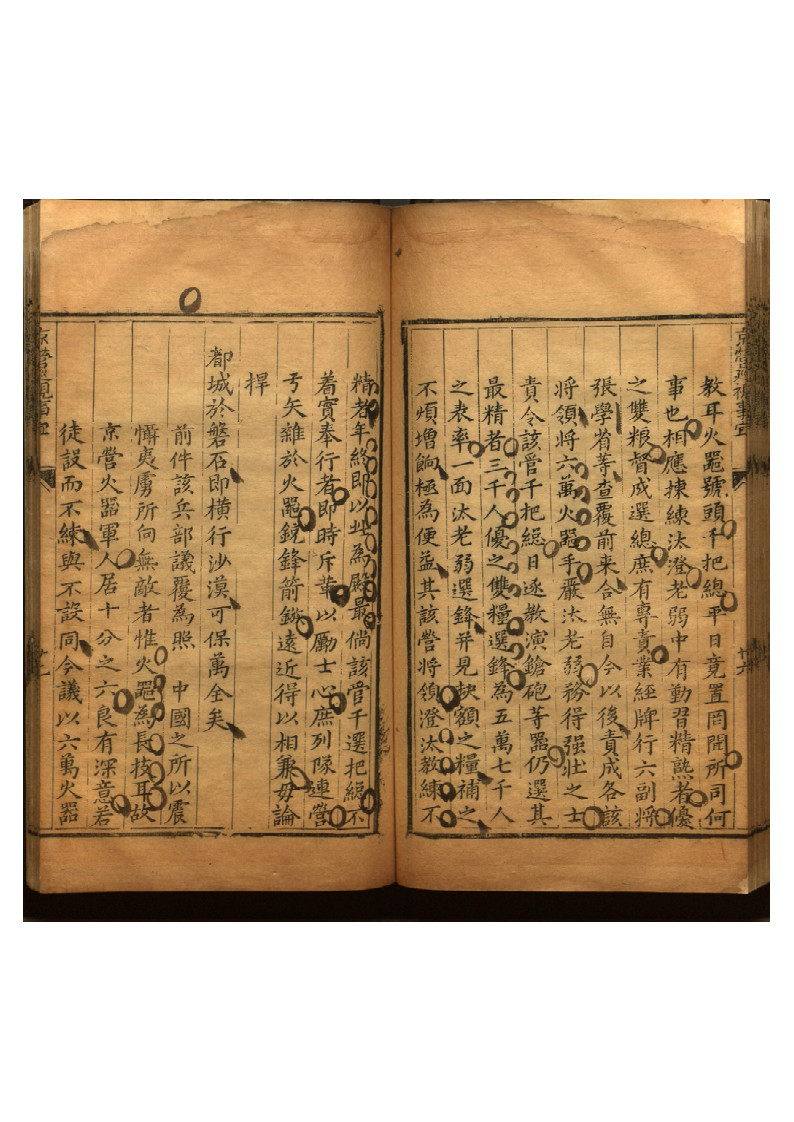 教耳火器號頭千把總平日竟置罔聞所司何
事也相應揀練汰澄老弱中有勤習精熟者優
之雙粮督成選總庶有專責業經牌行六副將
張學省等查覆前來合無自今以後責成各該
將領將六萬火器手嚴汰老弱務得强壯之士
責令該營千把總日逐教演鎗砲等器仍選其
最精者三千人優之雙糧選鋒為五萬七千人
之表率一面汰老弱選鋒并見缺額之糧補之
不煩增餉極為便益其該營將領澄汰教練不
廿六
精者年終即以此為殿最倘該營千選把總不
着實奉行者即時斥革以勵士心庶列隊連營
弓矢雜於火器銃鋒箭鏃遠近得以相兼毋論
捍
都城於磐石即橫行沙漠可保萬全矣
前件該兵部議覆為照 中國之所以震
懾夷虜所向無敵者惟火器為長技耳故
京營火器軍人居十分之六良有深意若
徒設而不練與不設同今議以六萬火器
廿七